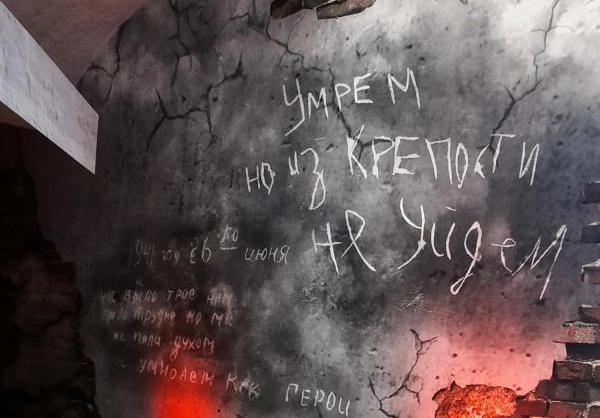 УМРЕМ
но из КРЕПОСТИ
не уйдем
1941 год 26 го июня
нас было трое нам
было трудно но мы
не пали духом
и умираем КАК ГЕРОИ